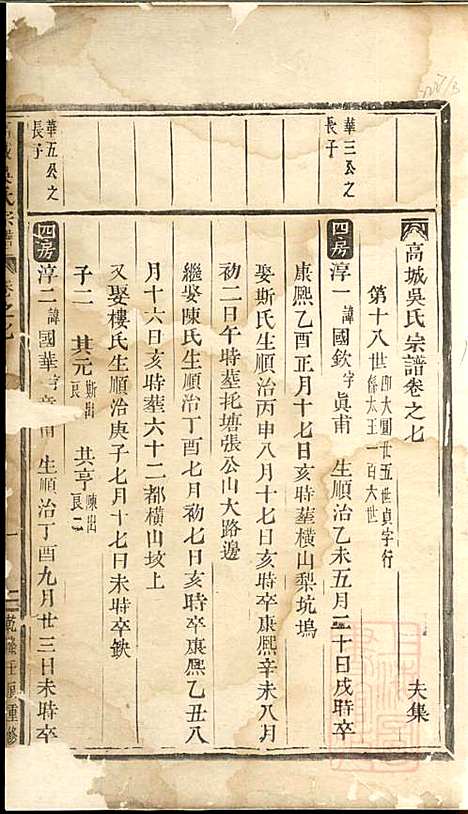 高城吳氏宗譜卷之七 夫集
第十八世 卽大圓廿五世貞字行
係太王一百六世
華三公之
長子
四房 淳一 諱國欽字眞甫 生順治乙未五月二十日戌時卒
康熙乙酉正月十七日亥時塟橫山梨坑塢
娶斯氏生順治丙申八月十七日亥時卒康熙辛未八月
初二日午時塟扥塘張公山大路邊
繼娶陳氏生順治丁酉七月初七日亥時卒康熙乙丑八
月十六日亥時塟六十二都橫山坟上
又娶樓氏生順治庚子七月十七日未時卒缺
子二 其元 斯出 艮一 其亨 陳出 艮二
華五公之
長子
四房 淳二 諱國華字 甫 生順治丁酉九月廿三日未時卒
吳氏宗譜 卷之七 一 乾隆壬 重修